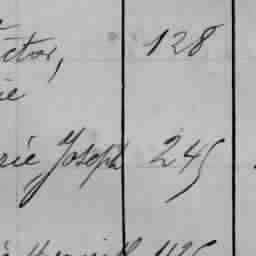 ctor, 128
ie
rie Joseph 245